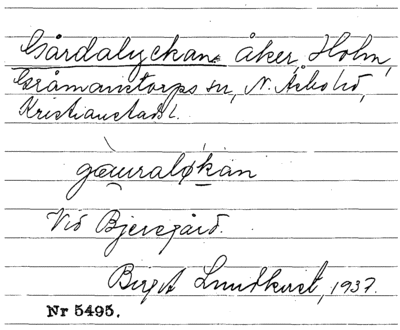 Gårdalyckan åker, Holm,
Gråmanstorps sn, N. Åsbo hd,
Kristianstads l.
gæuraløkan
Vid Bjersgård.
Birgit Lundkvist, 1937.
Nr 5495.